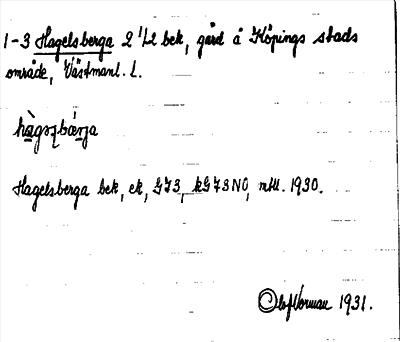 1-3 Hagelsberga 2 1/2 bek, gård å Köpings stads
område, Västmanl. L.
Hagelsberga bek, ek, G73, kG73NO, mtl. 1930.
Olof Norman 1931.